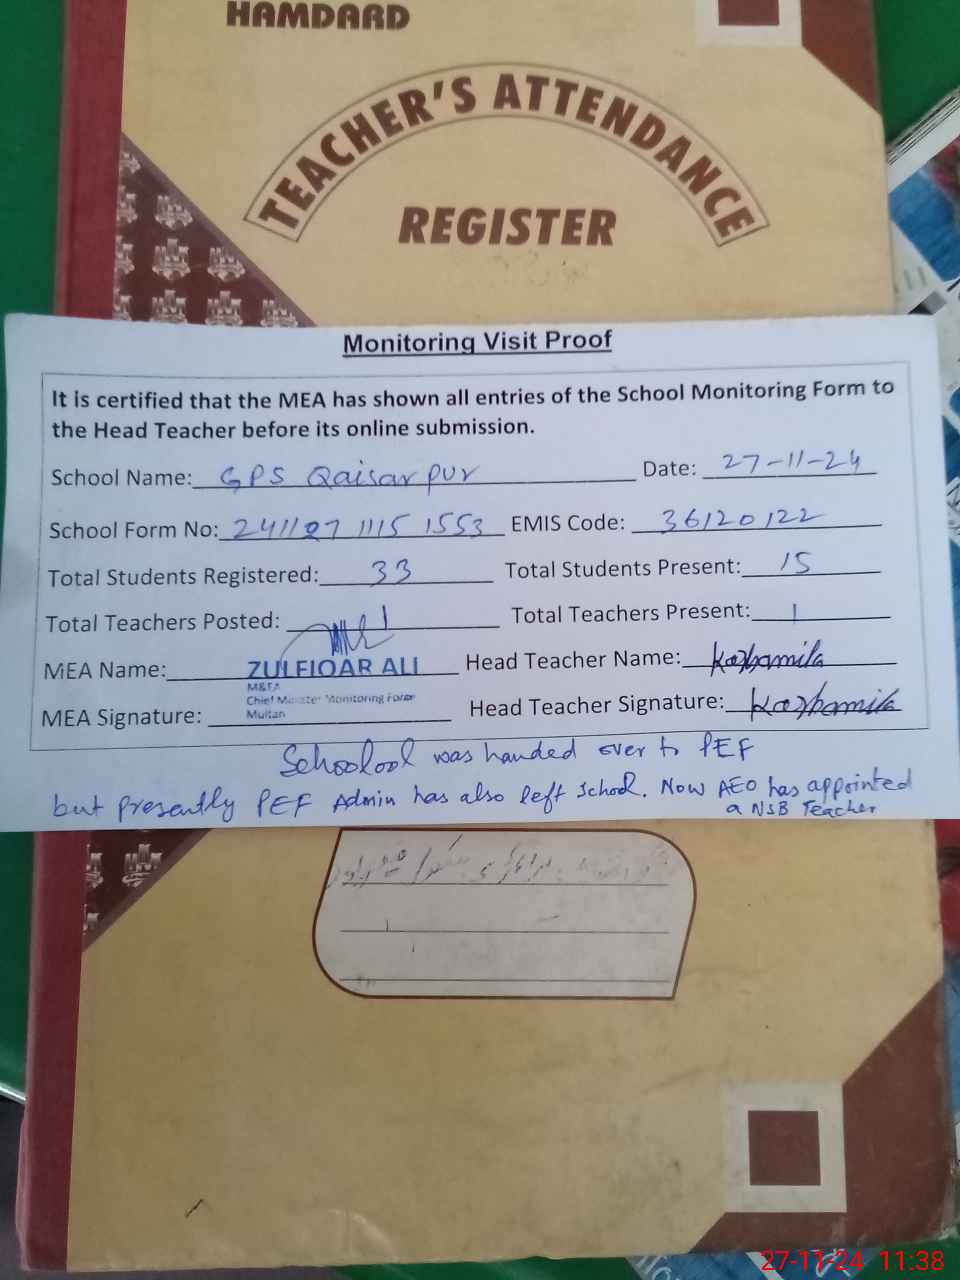 HAMDARD
TEACHER'S ATTENDANCE
REGISTER
Monitoring Visit Proof
It is certified that the MEA has shown all entries of the School Monitoring Form to
the Head Teacher before its online submission.
School Name: GPS Qaisar pur Date: 27-11-24
School Form No: 241127 1115 1553 EMIS Code: 36120122
Total Students Registered: 33 Total Students Present: 15
Total Teachers Posted: 1 Total Teachers Present: 1
MEA Name: ZULFIQAR ALI Head Teacher Name:
M&EA
Chief Minister Monitoring Force
Multan
MEA Signature: Head Teacher Signature:
Schoolool was handed over to PEF
but presently PEF Admin has also left School. Now AEO has appointed
a NSB Teacher
27-11-24 11:38